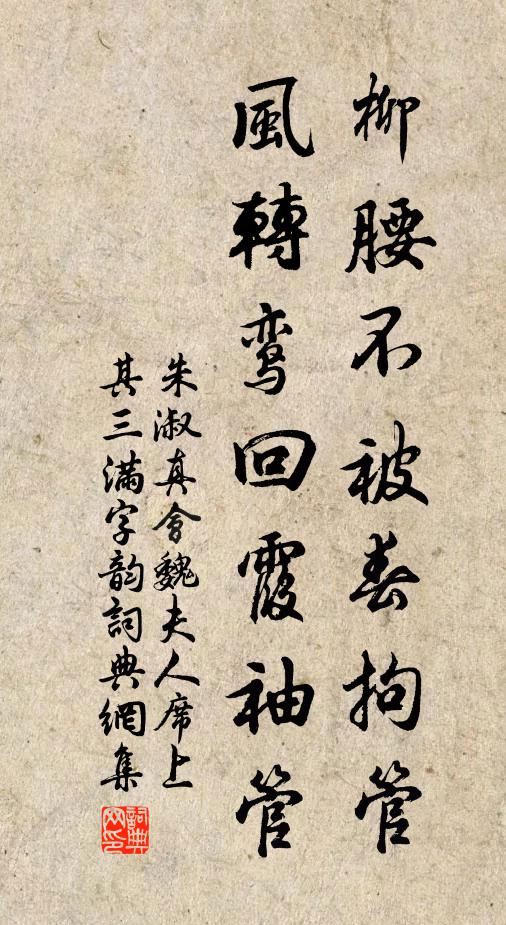 柳腰不被春拘管
風轉鸾回霞袖管
朱淑真會魏夫人席上
其三滿字韵詞典網集
詞典
网印